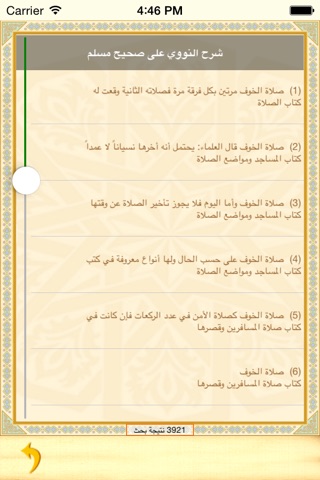 Carrier 4:46 PM
شرح النووي على صحيح مسلم
(1) صلاة الخوف مرتين بكل فرقة مرة فصلاته الثانية وقعت له
كتاب الصلاة
(2) صلاة الخوف قال العلماء: يحتمل أنه أخرها نسياناً لا عمداً
كتاب المساجد ومواضع الصلاة
(3) صلاة الخوف وأما اليوم فلا يجوز تأخير الصلاة عن وقتها
كتاب المساجد ومواضع الصلاة
(4) صلاة الخوف على حسب الحال ولها أنواع معروفة في كتب
كتاب المساجد ومواضع الصلاة
(5) صلاة الخوف كصلاة الأمن في عدد الركعات فإن كانت في
كتاب صلاة المسافرين وقصرها
(6) صلاة الخوف
كتاب صلاة المسافرين وقصرها
3921 نتيجة بحث